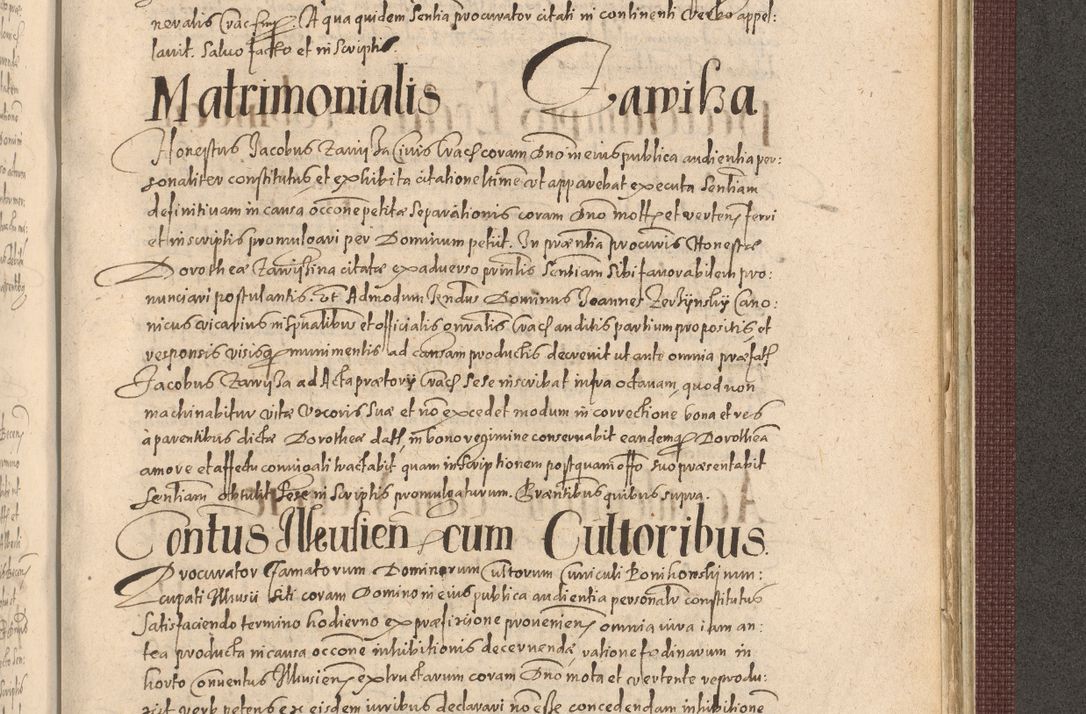 neralis Crac. A qua quidem sentia procurator citati in continenti verbo appel:
lavit. Salvo facto et in scriptis.
Matrimonialis Zawiska
Honestus Jacobus Zawiska Civis Crac coram Dno in eius publica audientia per:
sonaliter constitutus et exhibita citatione ltime ut apparebat executa Sentiam
definitivam in causa occone petitæ separationis coram Dno mott et verten ferri
et in scriptis promulgari per Dominum petiit. In præntia procuris Honestæ
Dorotheæ Zawistina citatæ ex adverso prinlis Sentiam sibi favorabilem pro:
nunciari postulantis. Vt Admodum Rendus Dominus Joannes Zerzynskij Cano:
nicus vicarius in spualibus et officialis gnralis Crac auditis partium propositis et
responsis visisq munimentis ad causam productis decrevit ut ante omnia præfat
Jacobus Zawissa ad Acta prætorij Crac sese inscribat infra octavam, quod non
machinabitur vitæ Vxoris suæ et no excedet modum in correctione bona et res
à parentibus dictæ Dorotheæ dat in bono regimine conservabit eandemq Dorotheã
amore et affectu coniugali tractabit quam inscriptionem postquam offo suo præsentabit
Sentiam obtulit sese in scriptis promulgaturum. Præntibus quibus supra.
Contus Illkusien cum Cultoribus
Procurator Famatorum Dominorum Cultorum Cuniculi Ponikowskij nun:
cupati Illkusii siti coram Domino in eius publica audientia personalr constitutus
satisfaciendo termino hodierno ex præfixione provenien omnia iura iam an:
tea producta in causa occone inhibitionis decernendæ ratione fodinarum in
horto Conventus Illkusien extructarum coram Dno mota et vertente reprodu:
xit verb petens ex eisdem iuribus declarari no esse concedendam inhibitione